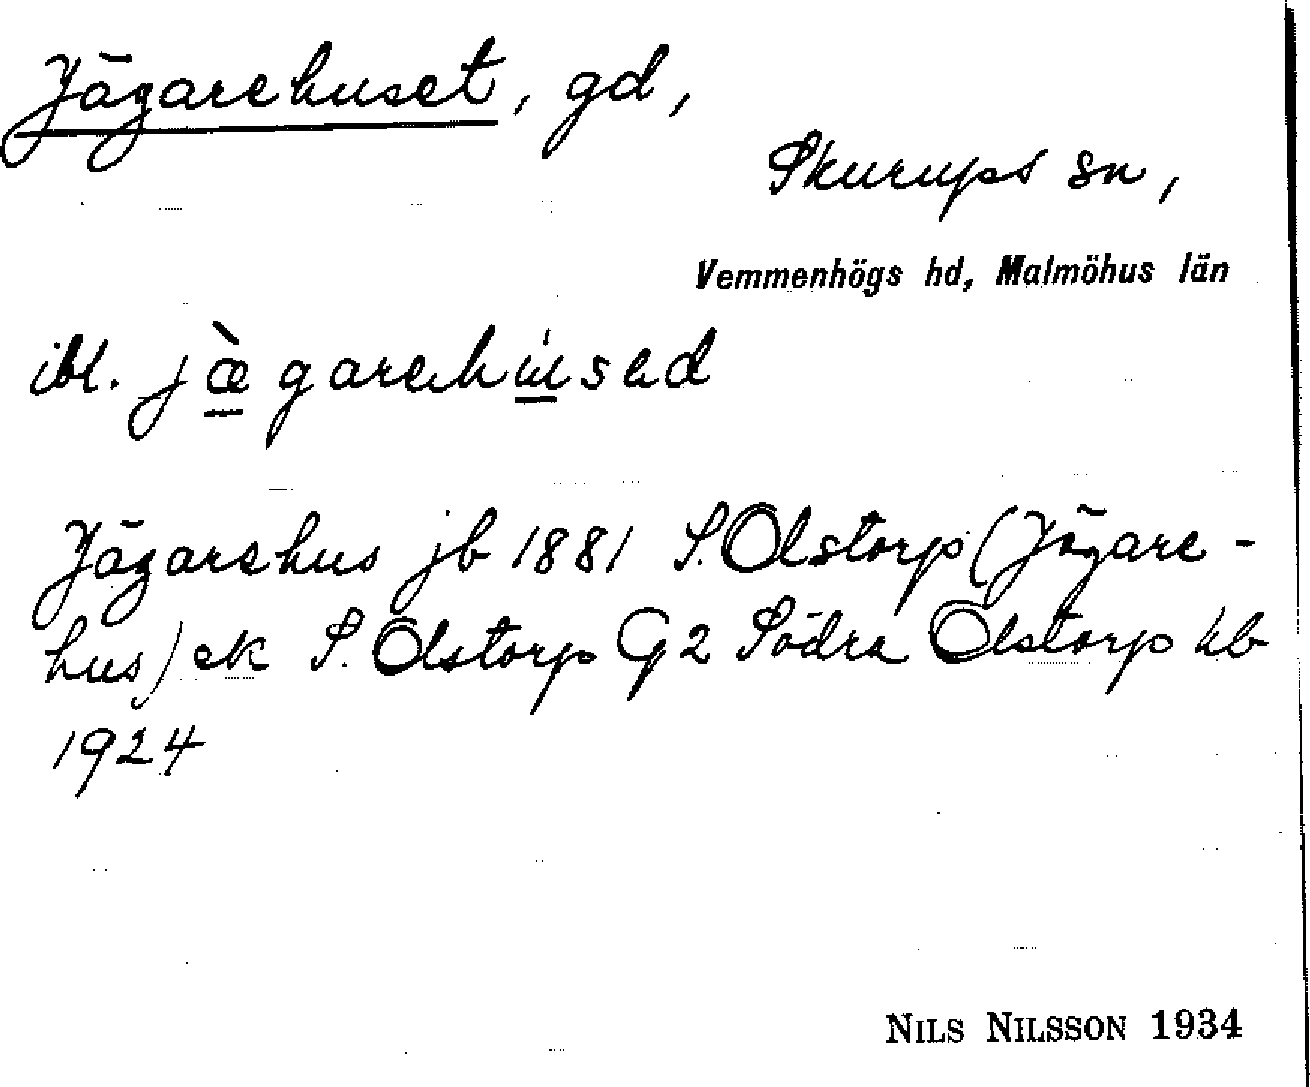 Jägarehuset, gd,
Skurups sn,
Vemmenhögs hd, Malmöhus län
ibl. jæ̀garehúsed
Jägarehus jb 1881 S. Olstorp (Jägare-
hus) ek S. Olstorp G2 Södra Olstorp kb
1924
NILS NILSSON 1934